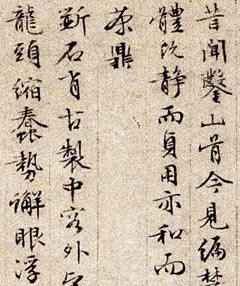 昔聞鑿山骨今見編楚
體既静而貞用亦和而
茶鼎
斲石肖古製中容外
龍頭縮蠢勢蟹眼浮